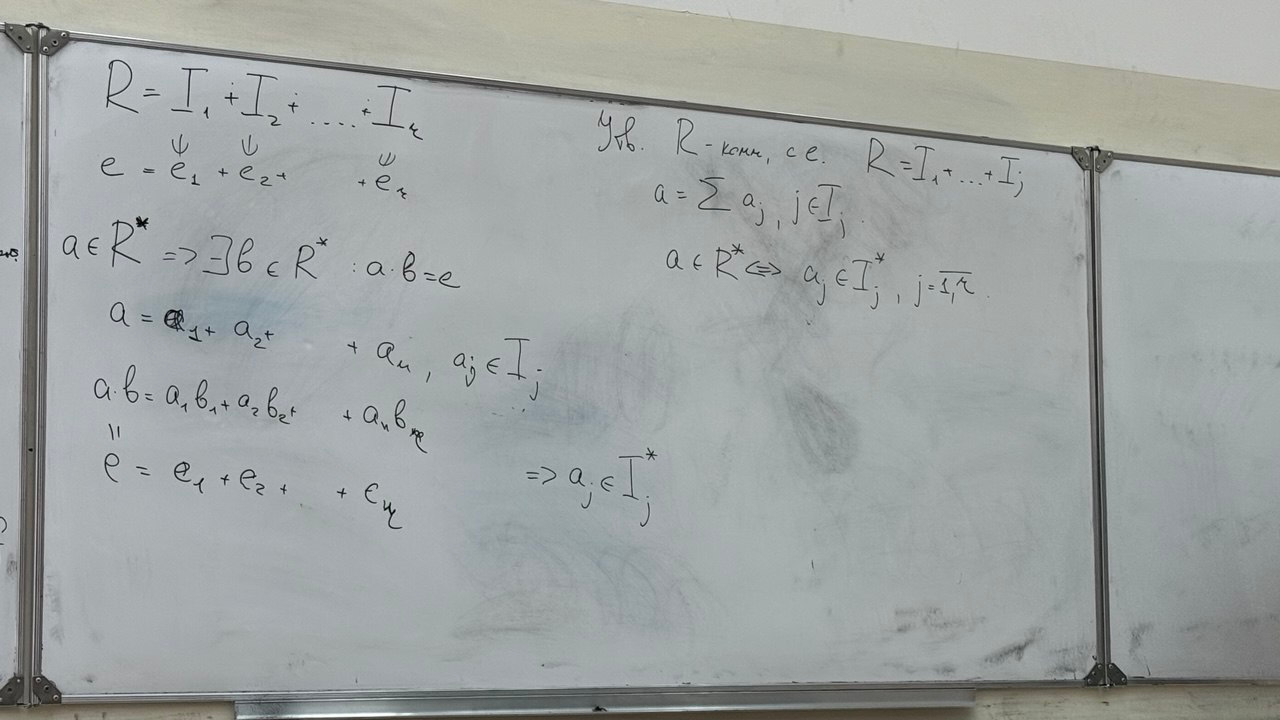 R = I₁ ∔ I₂ ∔ .... ∔ I_r
ψ ψ ψ
e = e₁ + e₂ + + e_r
a ∈ R* => ∃ b ∈ R* : a·b = e
a = a₁ + a₂ + + a_n , a_j ∈ I_j
a·b = a₁b₁ + a₂b₂ + + a_n b_r
"
e = e₁ + e₂ + .. + e_r => a_j ∈ I_j*
Утв. R - комм, с е. R = I₁ + ... + I_j
a = ∑ a_j , j ∈ I_j .
a ∈ R* <=> a_j ∈ I_j* , j = 1,r .